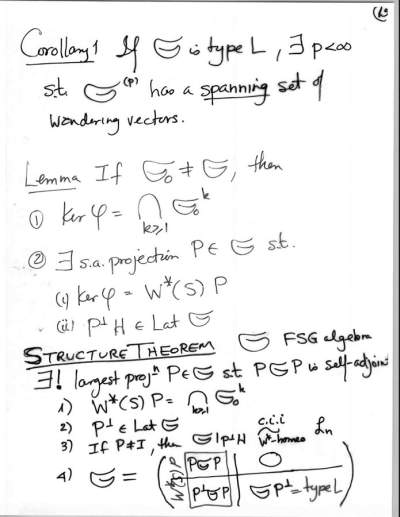 Corollary 1 If 𝔖 is type L, ∃ p<∞
s.t. 𝔖^(p) has a spanning set of
wandering vectors.
Lemma If 𝔖₀ ≠ 𝔖, then
① Ker φ = ⋂_{k≥1} 𝔖₀^k
② ∃ s.a. projection P ∈ 𝔖 s.t.
(i) Ker φ = W*(S) P
(ii) P⊥H ∈ Lat 𝔖
STRUCTURE THEOREM 𝔖 FSG algebra
∃! largest projⁿ P∈𝔖 s.t P𝔖P is self-adjoint
1) W*(S) P = ⋂_{k≥1} 𝔖₀^k
2) P⊥ ∈ Lat 𝔖
3) If P≠I, then 𝔖|P⊥H c.i.i W*-homeo ℒn
4) 𝔖 = ( W*(S)P | P𝔖P | O
P⊥𝔖P | 𝔖P⊥ = type L )